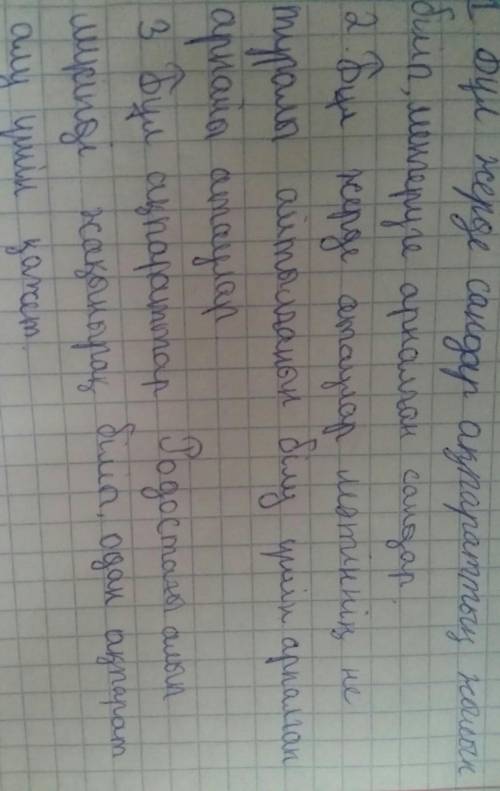 1. Бұл жерде сандар ақпараттың жайын
біліп, меңгеруге арналған сандар.
2. Бұл жерде атаулар мәтіннің не
туралы айтылғанын білу үшін арналған
арнайы атаулар
3 Бұл ақпараттар Родостағы алып
мүсінді жақынырақ біліп, одан ақпарат
алу үшін қажет.